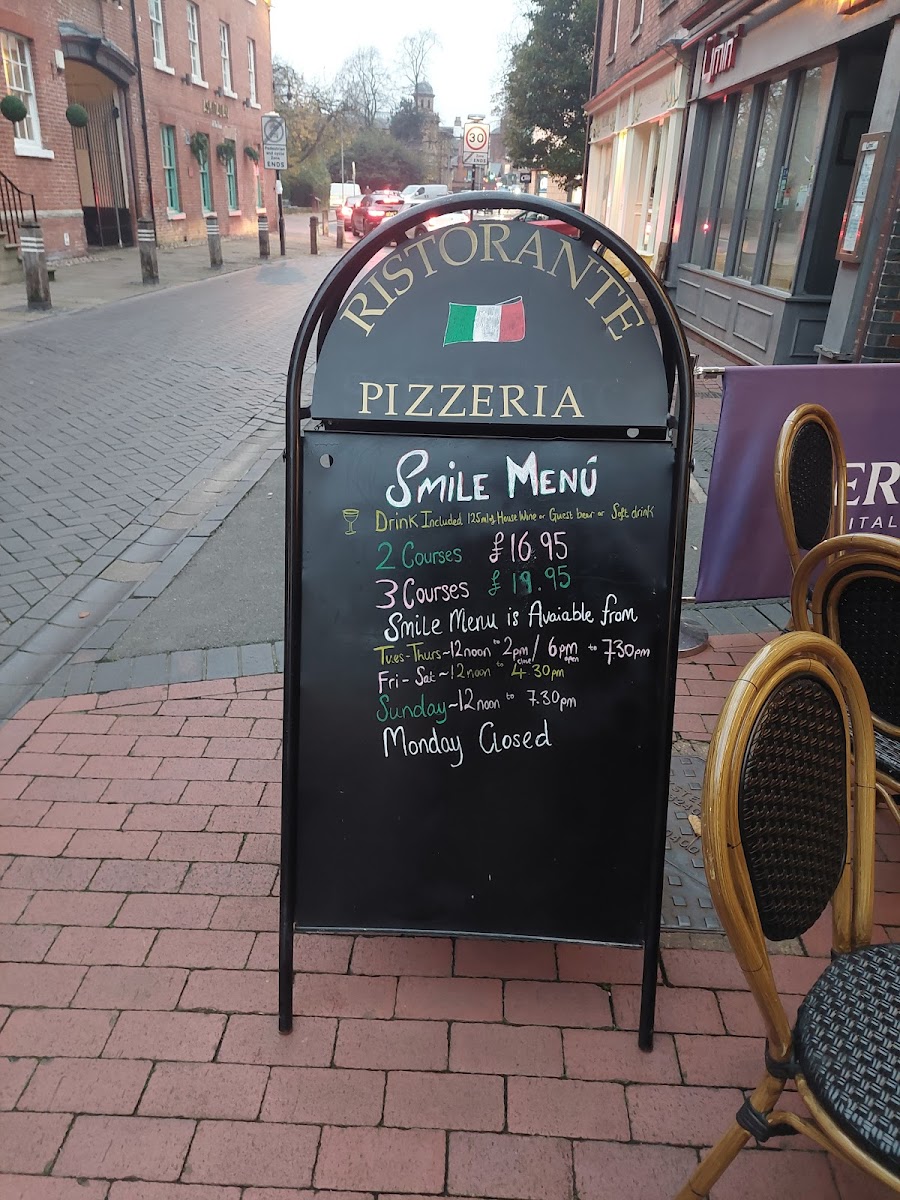 RISTORANTE
PIZZERIA
Smile Menú
Drink Included 125ml of House Wine or Guest beer or Soft drink
2 Courses £16.95
3 Courses £19.95
Smile Menu is Avaiable from
Tues-Thurs~12noon to 2pm / 6pm to 730pm
close open
Fri - Sat ~12 noon to 4.30pm
Sunday ~12 noon to 7.30pm
Monday Closed
30
ZONE
ENDS
ENDS
ER
ITAL